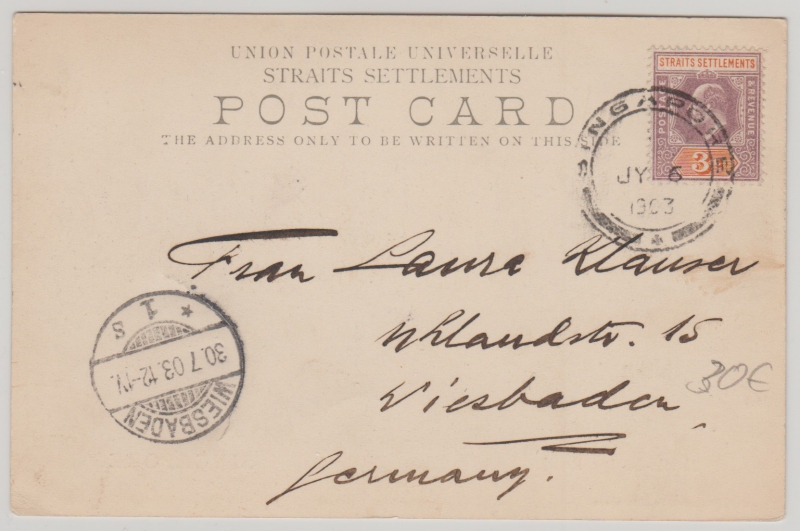 UNION POSTALE UNIVERSELLE
STRAITS SETTLEMENTS
POST CARD
THE ADDRESS ONLY TO BE WRITTEN ON THIS SIDE
STRAITS SETTLEMENTS
POSTAGE
& REVENUE
3
SINGAPORE
JY 6
1903
Frau Laura Klauser
Uhlandstr. 15
Wiesbaden
Germany.
30€
* 1 s
30.7.03.12-1N.
WIESBADEN